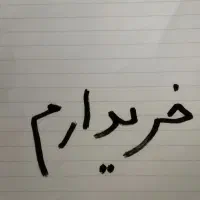 خریدارم